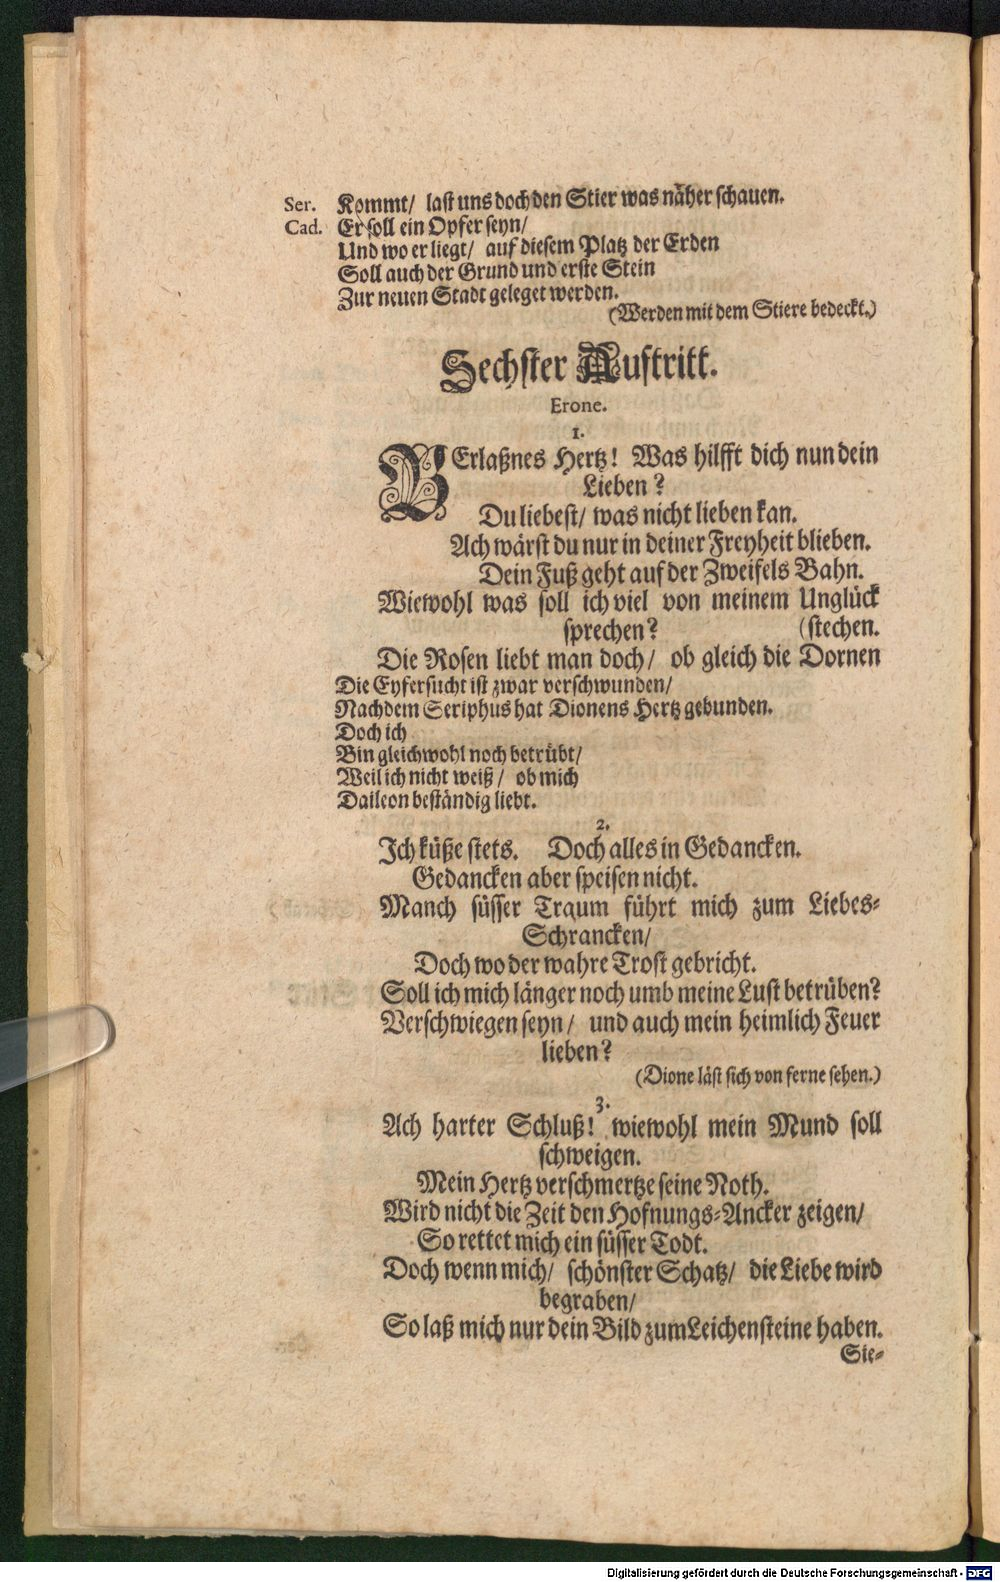 Ser. Kommt/ last uns doch den Stier was näher schauen.
Cad. Er soll ein Opfer seyn/
Und wo er liegt/ auf diesem Platz der Erden
Soll auch der Grund und erste Stein
Zur neuen Stadt geleget werden.
(Werden mit dem Stiere bedeckt.)
Sechster Auftritt.
Erone.
1.
VErlaßnes Hertz! Was hilfft dich nun dein
Lieben?
Du liebest/ was nicht lieben kan.
Ach wärst du nur in deiner Freyheit blieben.
Dein Fuß geht auf der Zweifels Bahn.
Wiewohl was soll ich viel von meinem Unglück
sprechen? (stechen.
Die Rosen liebt man doch/ ob gleich die Dornen
Die Eyfersucht ist zwar verschwunden/
Nachdem Seriphus hat Dionens Hertz gebunden.
Doch ich
Bin gleichwohl noch betrübt/
Weil ich nicht weiß/ ob mich
Daileon beständig liebt.
2.
Ich küße stets. Doch alles in Gedancken.
Gedancken aber speisen nicht.
Manch süsser Traum führt mich zum Liebes-
Schrancken/
Doch wo der wahre Trost gebricht.
Soll ich mich länger noch umb meine Lust betrüben?
Verschwiegen seyn/ und auch mein heimlich Feuer
lieben?
(Dione läst sich von ferne sehen.)
3.
Ach harter Schluß! wiewohl mein Mund soll
schweigen.
Mein Hertz verschmertze seine Noth.
Wird nicht die Zeit den Hofnungs-Ancker zeigen/
So rettet mich ein süsser Todt.
Doch wenn mich/ schönster Schatz/ die Liebe wird
begraben/
So laß mich nur dein Bild zum Leichensteine haben.
Sie-
Digitalisierung gefördert durch die Deutsche Forschungsgemeinschaft - DFG